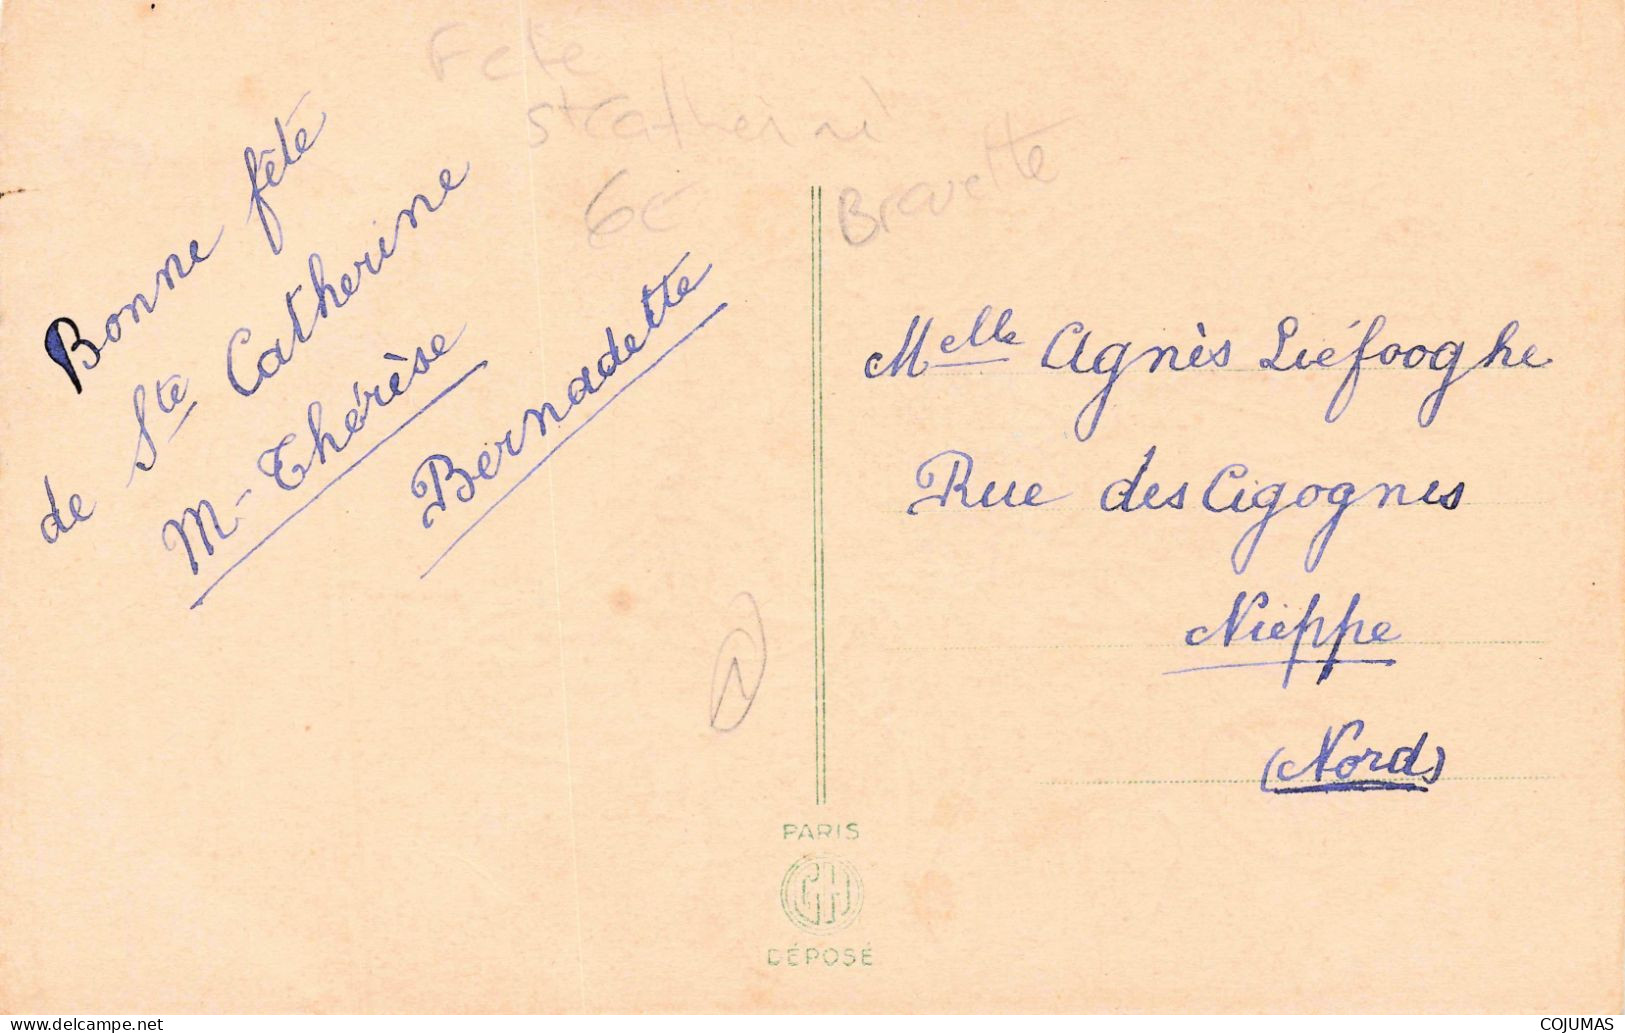 Fete
St Catherine
6€
Bonne fête
de Ste Catherine
M-Thérèse
Bernadette
Melle Agnès Liéfooghe
Rue des Cigognes
Nieppe
(Nord)
PARIS
GH
DÉPOSÉ
COJUMAS